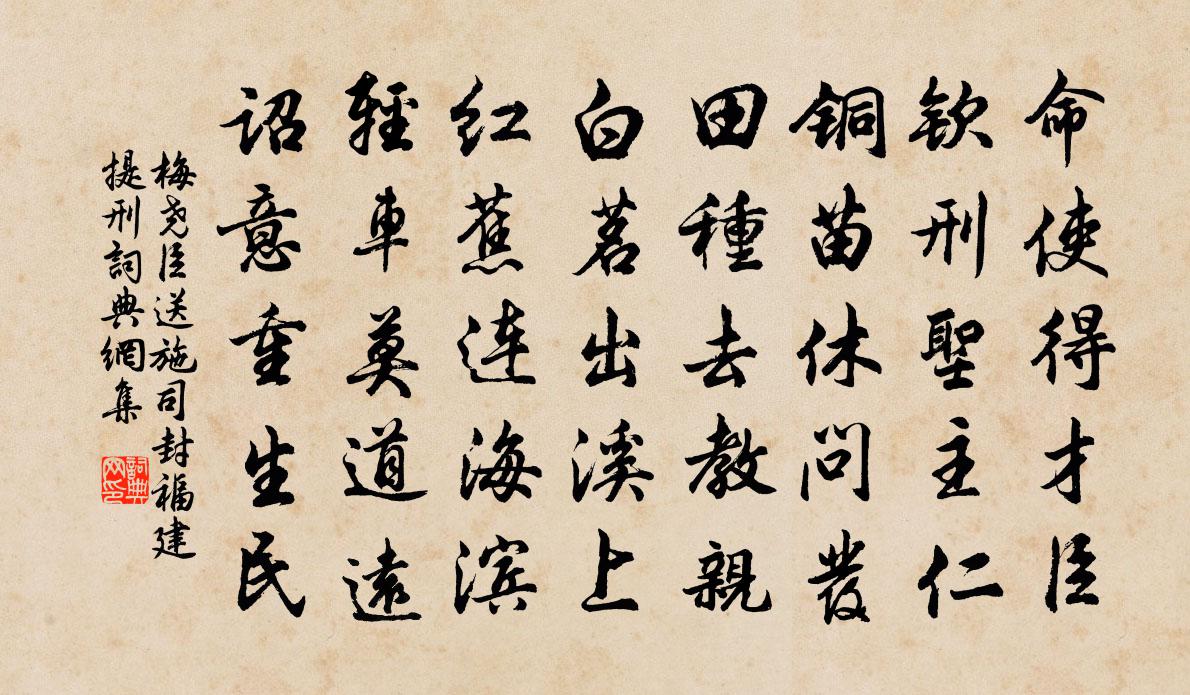 命使得才臣
钦刑聖主仁
铜苗休問發
田種去教親
白茗出溪上
红蕉连海滨
輕車莫道遠
诏意重生民
梅尧臣送施司封福建
提刑詞典網集
詞典
网印